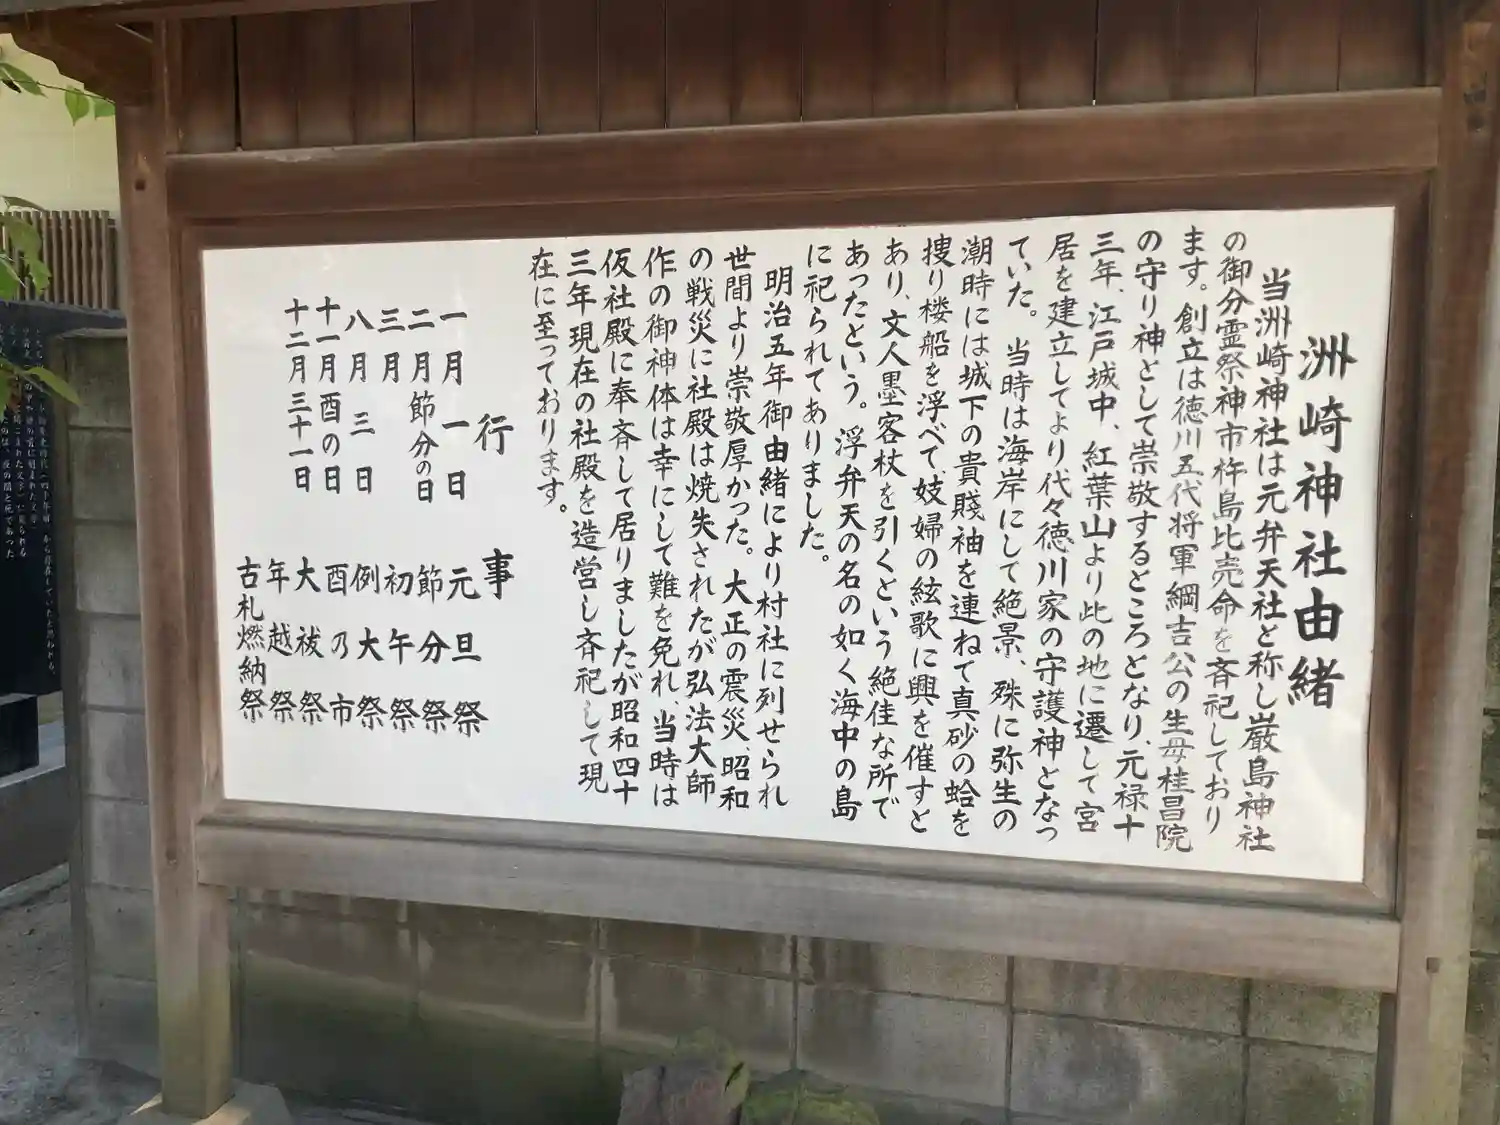 洲崎神社由緒
当洲崎神社は元弁天社と称し巌島神社
の御分霊祭神市杵島比売命を斉祀しており
ます。創立は徳川五代将軍綱吉公の生母桂昌院
の守り神として崇敬するところとなり、元禄十
三年、江戸城中、紅葉山より此の地に遷して宮
居を建立してより代々徳川家の守護神となっ
ていた。 当時は海岸にして絶景、殊に弥生の
潮時には城下の貴賤袖を連ねて真砂の蛤を
捜り楼船を浮べて妓婦の絃歌に興を催すと
あり、文人墨客杖を引くという絶佳な所で
あったという。浮弁天の名の如く海中の島
に祀られてありました。
明治五年御由緒により村社に列せられ
世間より崇敬厚かった。大正の震災、昭和
の戦災に社殿は焼失されたが弘法大師
作の御神体は幸にして難を免れ、当時は
仮社殿に奉斉して居りましたが昭和四十
三年現在の社殿を造営し斉祀して現
在に至っております。
行事
一月一日 元旦祭
二月節分の日 節分祭
三月 初午祭
八月三日 例大祭
十一月酉の日 酉乃市
十二月三十一日 大祓祭
年越祭
古札燃納祭